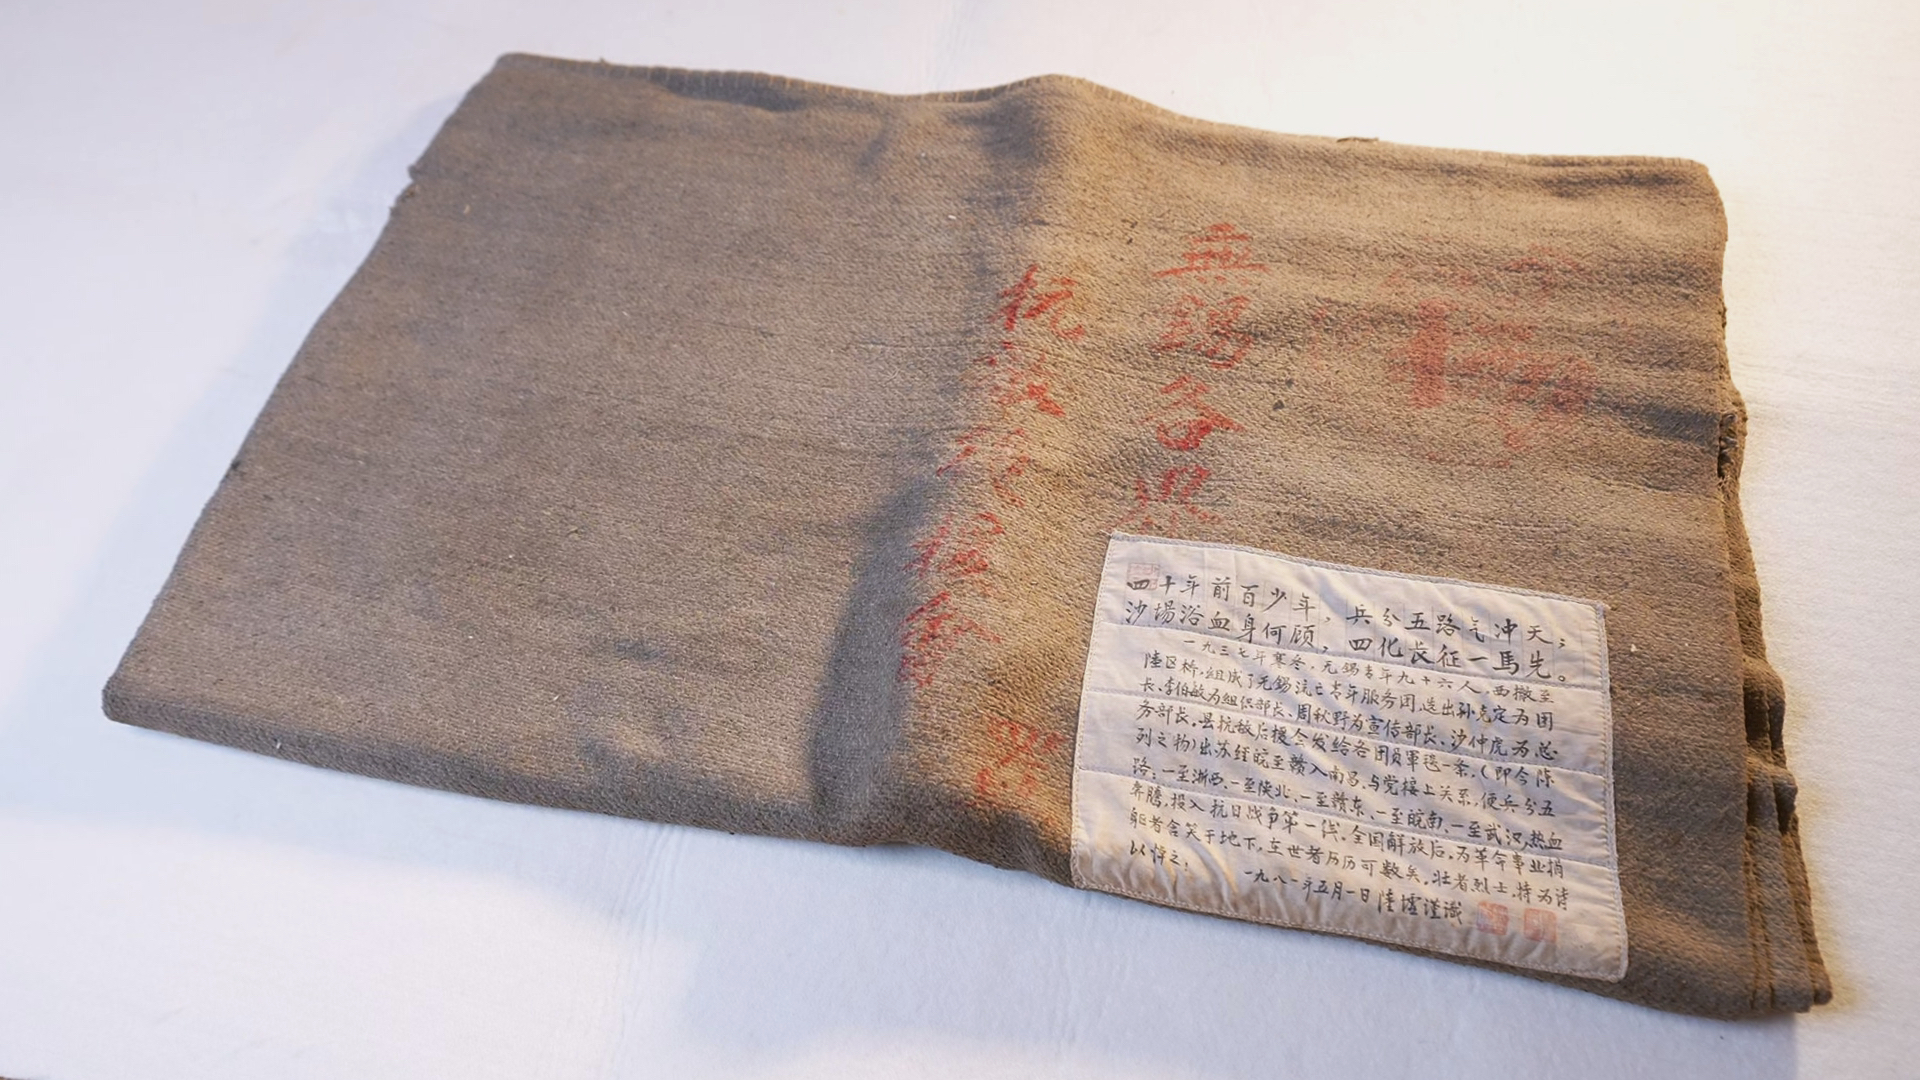 無錫各界
抗敌後援會
四十年前百少年，兵分五路气冲天；
沙場浴血身何顾，四化长征一馬先。
一九三七年寒冬，无锡青年九十六人，西撤至
陆区桥，组成了无锡流亡青年服务团，选出孙克定为团
长、李伯敏为组织部长、周秋野为宣传部长、沙仲虎为总
务部长。县抗敌后援会发给各团员軍毯一条，（即今陈
列之物）出苏经皖至赣入南昌，与党接上关系，便兵分五
路：一至浙西、一至陕北、一至赣东、一至皖南、一至武汉，热血
奔腾，投入抗日战争第一线。全国解放后，为革命事业捐
躯者含笑于地下，在世者历历可数矣。壮者烈士，特为诗
以悼之。
一九八一年五月一日陸墟谨识